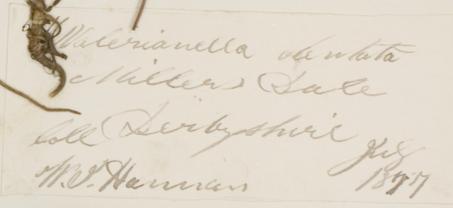 Valerianella dentata
Millers Dale
Coll Derbyshire
W. J. Hannan July
1877